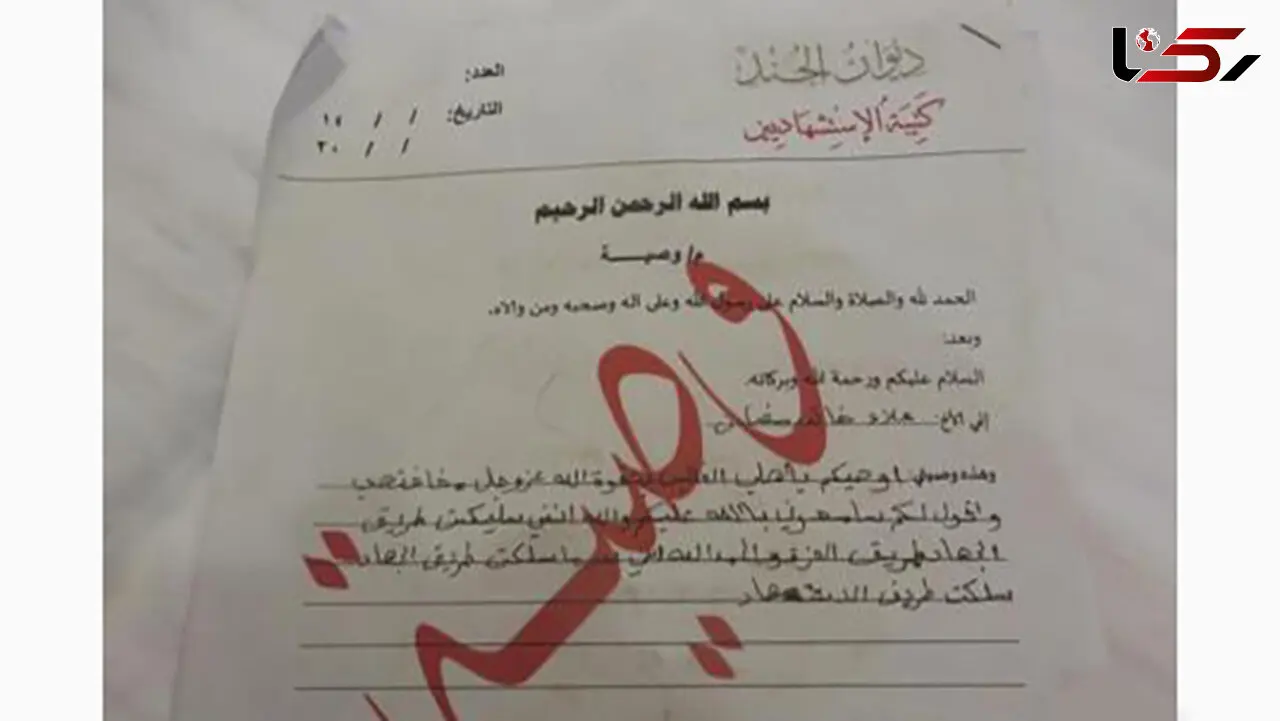 رکنا
ديوان الجند
كتيبة الإستشهاديين
العدد:
التاريخ: / / ١٤
/ / ٢٠
بسم الله الرحمن الرحيم
م/ وصيـــــة
الحمد لله والصلاة والسلام على رسول الله وعلى اله وصحبه ومن والاه.
وبعد:
السلام عليكم ورحمة الله وبركاته.
إلى الأخ: علاء
وهذه وصيتي اوصيكم يا أهلي الغالين بتقوة الله عزوجل ومخافته
واقول لكم سامحوني بالله عليكم والله انني سليكت طريق
الجهاد طريق العزة والحمد الله سلكت طريق الجهاد
سلكت طريق
وصية